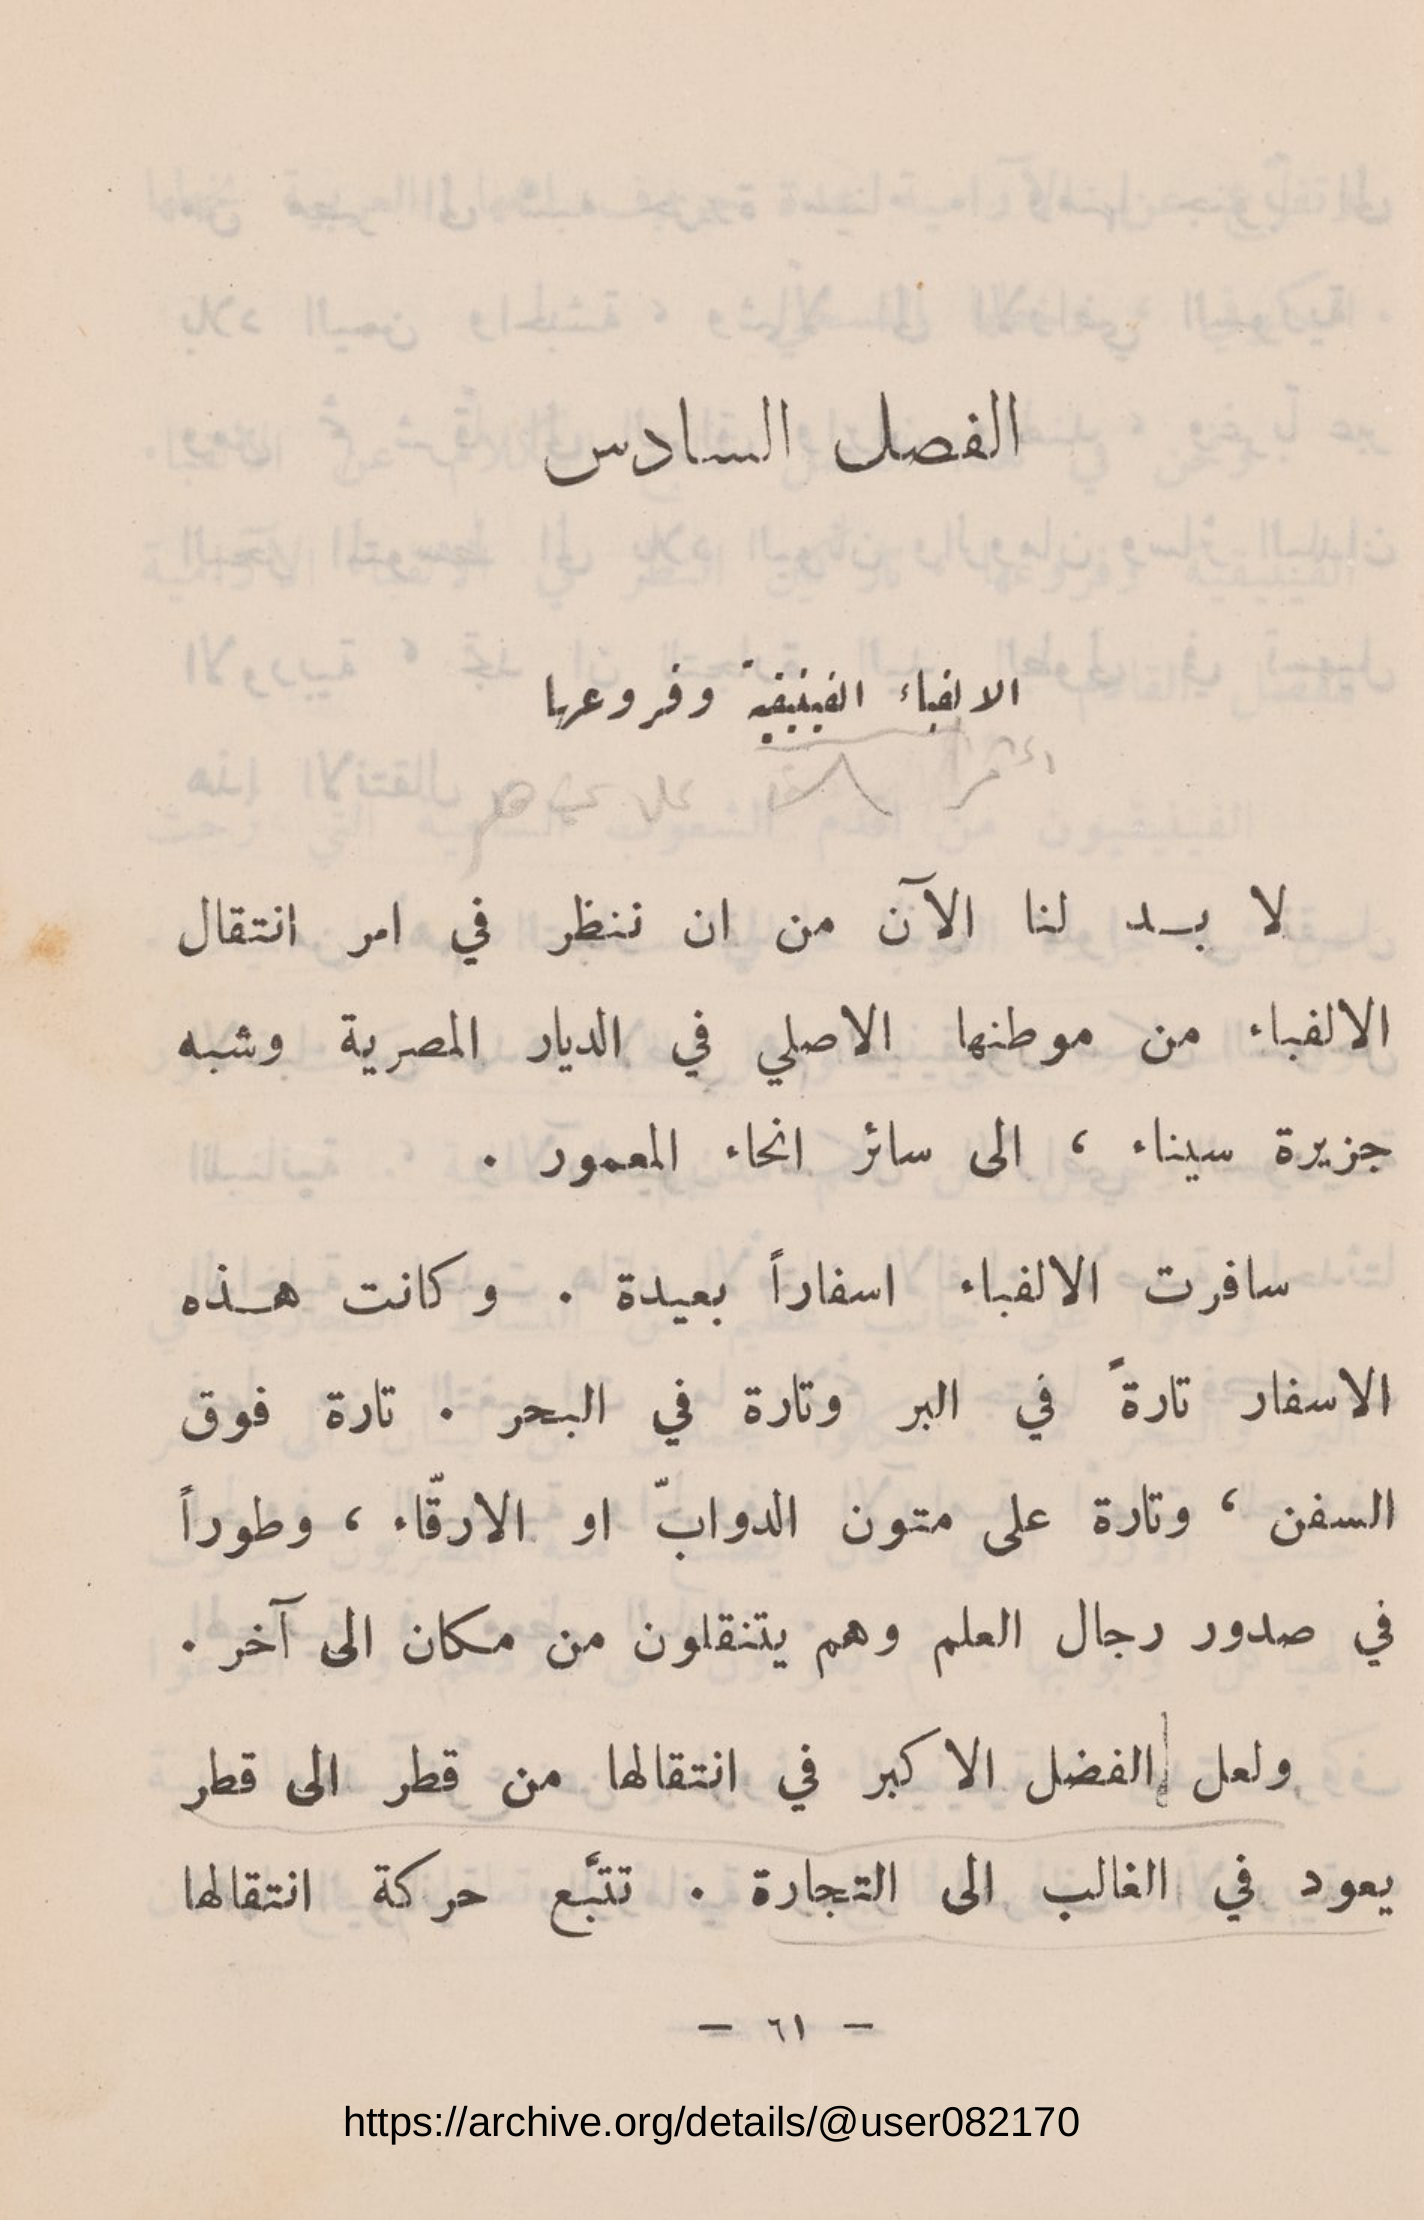 الفصل السادس
الالفباء الفينيقية وفروعها
لا بــد لنا الآن من ان ننظر في امر انتقال
الالفباء من موطنها الاصلي في الديار المصرية وشبه
جزيرة سيناء ، الى سائر انحاء المعمور .
سافرت الالفباء اسفاراً بعيدة . وكانت هــذه
الاسفار تارةً في البر وتارة في البحر . تارة فوق
السفن ، وتارة على متون الدوابّ او الارقّاء ، وطوراً
في صدور رجال العلم وهم يتنقلون من مكان الى آخر .
ولعل الفضل الاكبر في انتقالها من قطر الى قطر
يعود في الغالب الى التجارة . تتبَّع حركة انتقالها
— ٦١ —
https://archive.org/details/@user082170